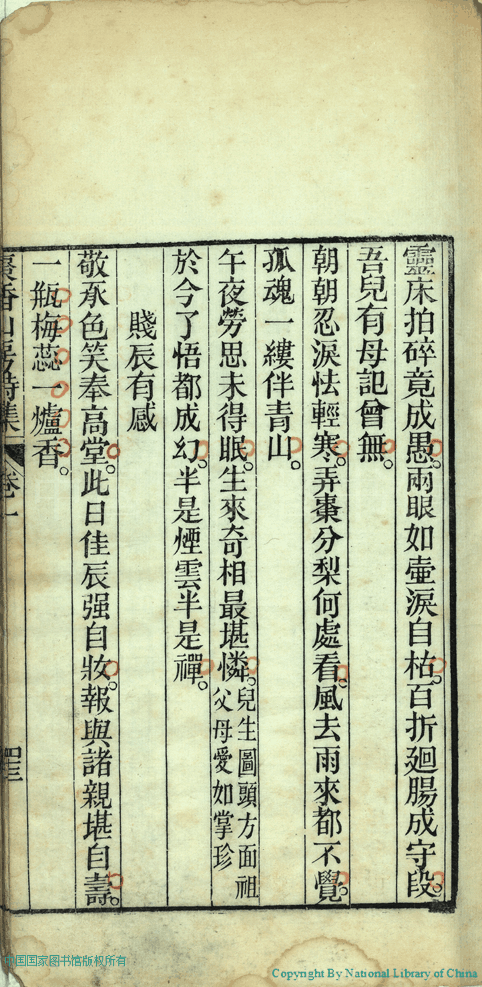 靈床拍碎竟成愚。兩眼如壷淚自枯。百折廻腸成寸段。
吾兒有母記曾無。
朝朝忍淚怯輕寒。弄棗分梨何處看。風去雨來都不覺。
孤魂一縷伴青山。
午夜勞思未得眠。生來奇相最堪憐。兒生圖頭方面祖父母愛如掌珍
於今了悟都成幻。半是煙雲半是禪。
賤辰有感
敬承色笑奉高堂。此日佳辰强自妝。報與諸親堪自壽。
一瓶梅蕊一爐香。
香山房詩集 卷一
国国家图书馆版权所有
Copyright By National Library of China